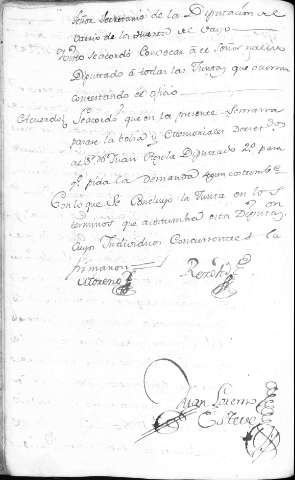 Señor Secretario de la Diputación del
Varrio de la de el Cayo
Visto Se acordó Convocar a este Señor
Diputado a todas las Juntas que ocurran
contestando el oficio
Acuerdos Se acordó que en la presente Semana
pase la bolsa y Ceremoniales
al Sr. Dn. Juan Diputado 2º para
q.e pida la Demanda segun costumbre
Con lo que Se Concluyó la Junta en los
terminos que acostumbra esta Diputac.on
cuyos Individuos Concurrentes la
firmaron
Moreno
Juan Lorenzo
Esteve